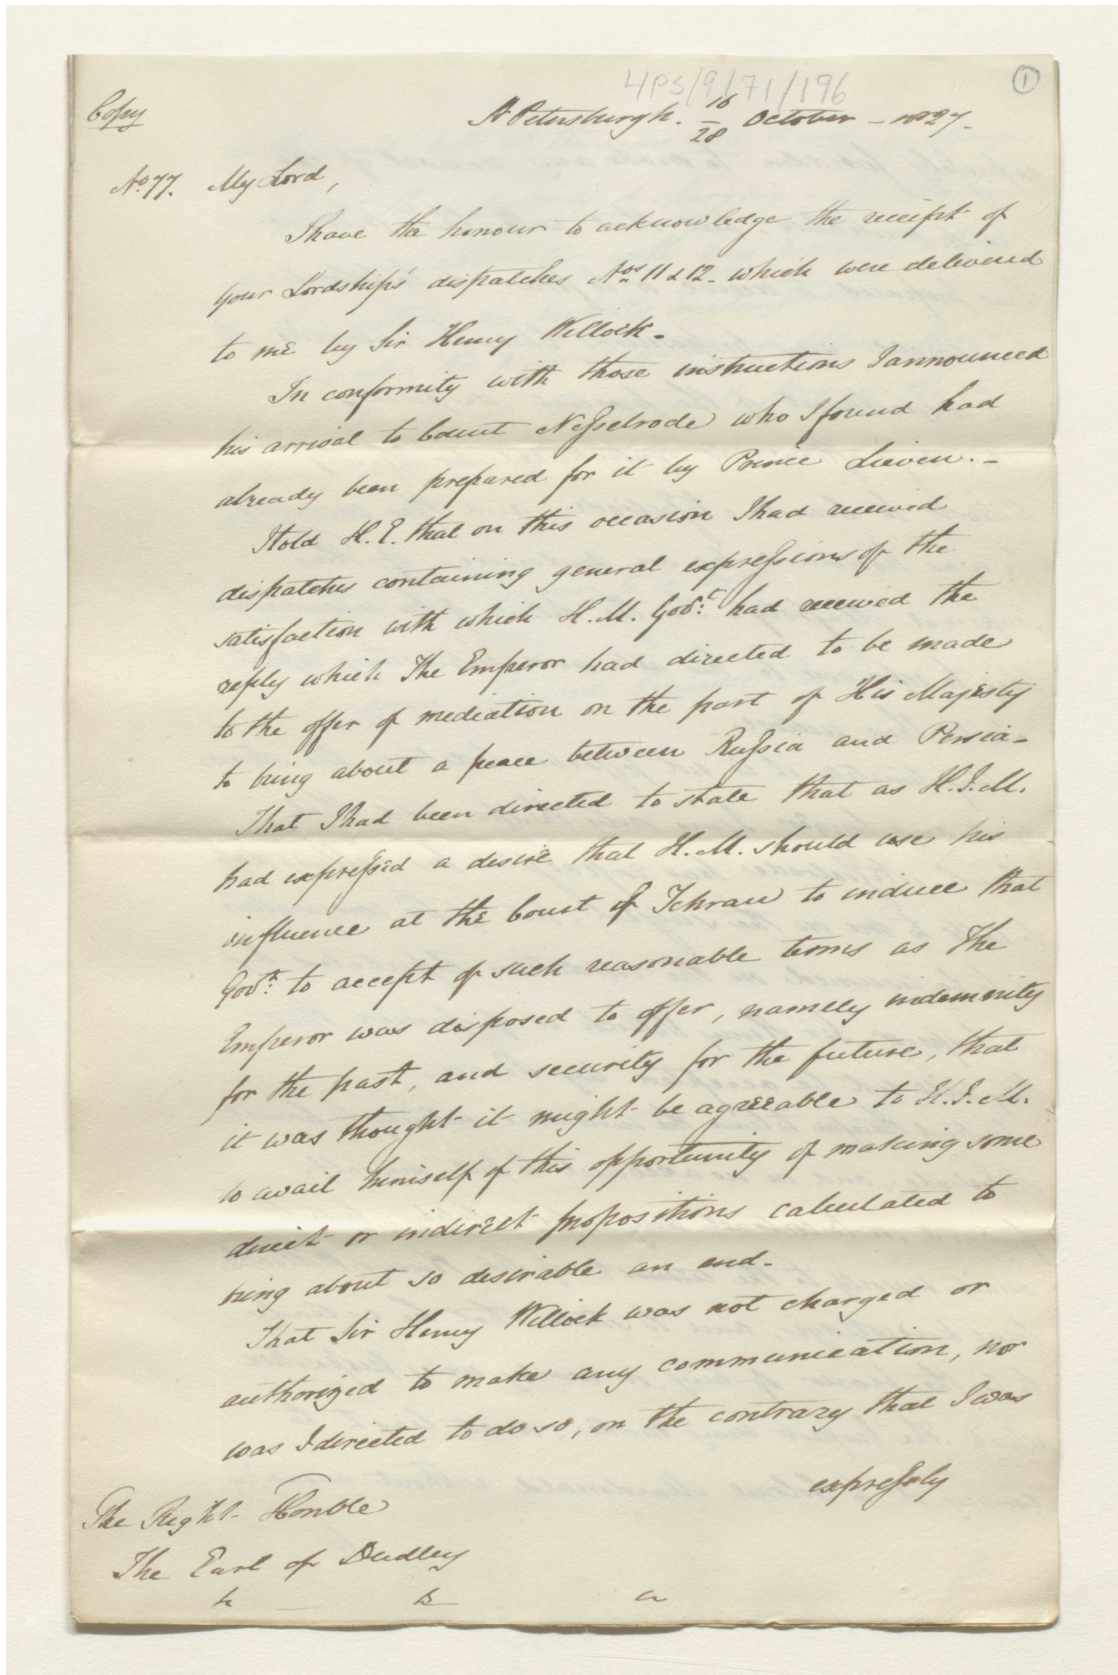 IPS/9/71/196
1
Copy
St Petersburgh. 16/28 October - 1827.
No. 77. My Lord,
I have the honour to acknowledge the receipt of
your Lordship's dispatches Nos. 11 & 12. which were delivered
to me by Sir Henry Willock.
In conformity with those instructions I announced
his arrival to Count Nesselrode who I found had
already been prepared for it by Prince Lieven. -
I told H.E. that on this occasion I had received
dispatches containing general expressions of the
satisfaction with which H.M. Govt. had received the
reply which The Emperor had directed to be made
to the offer of mediation on the part of His Majesty
to bring about a peace between Russia and Persia -
That I had been directed to state that as H.I.M.
had expressed a desire that H.M. should use his
influence at the Court of Tehran to induce that
Govt. to accept of such reasonable terms as The
Emperor was disposed to offer, namely indemnity
for the past, and security for the future, that
it was thought it might be agreeable to H.I.M.
to avail himself of this opportunity of making some
direct or indirect propositions calculated to
bring about so desirable an end. -
That Sir Henry Willock was not charged or
authorized to make any communication, nor
was I directed to do so, on the contrary that I was
expressly
The Right Honble
The Earl of Dudley